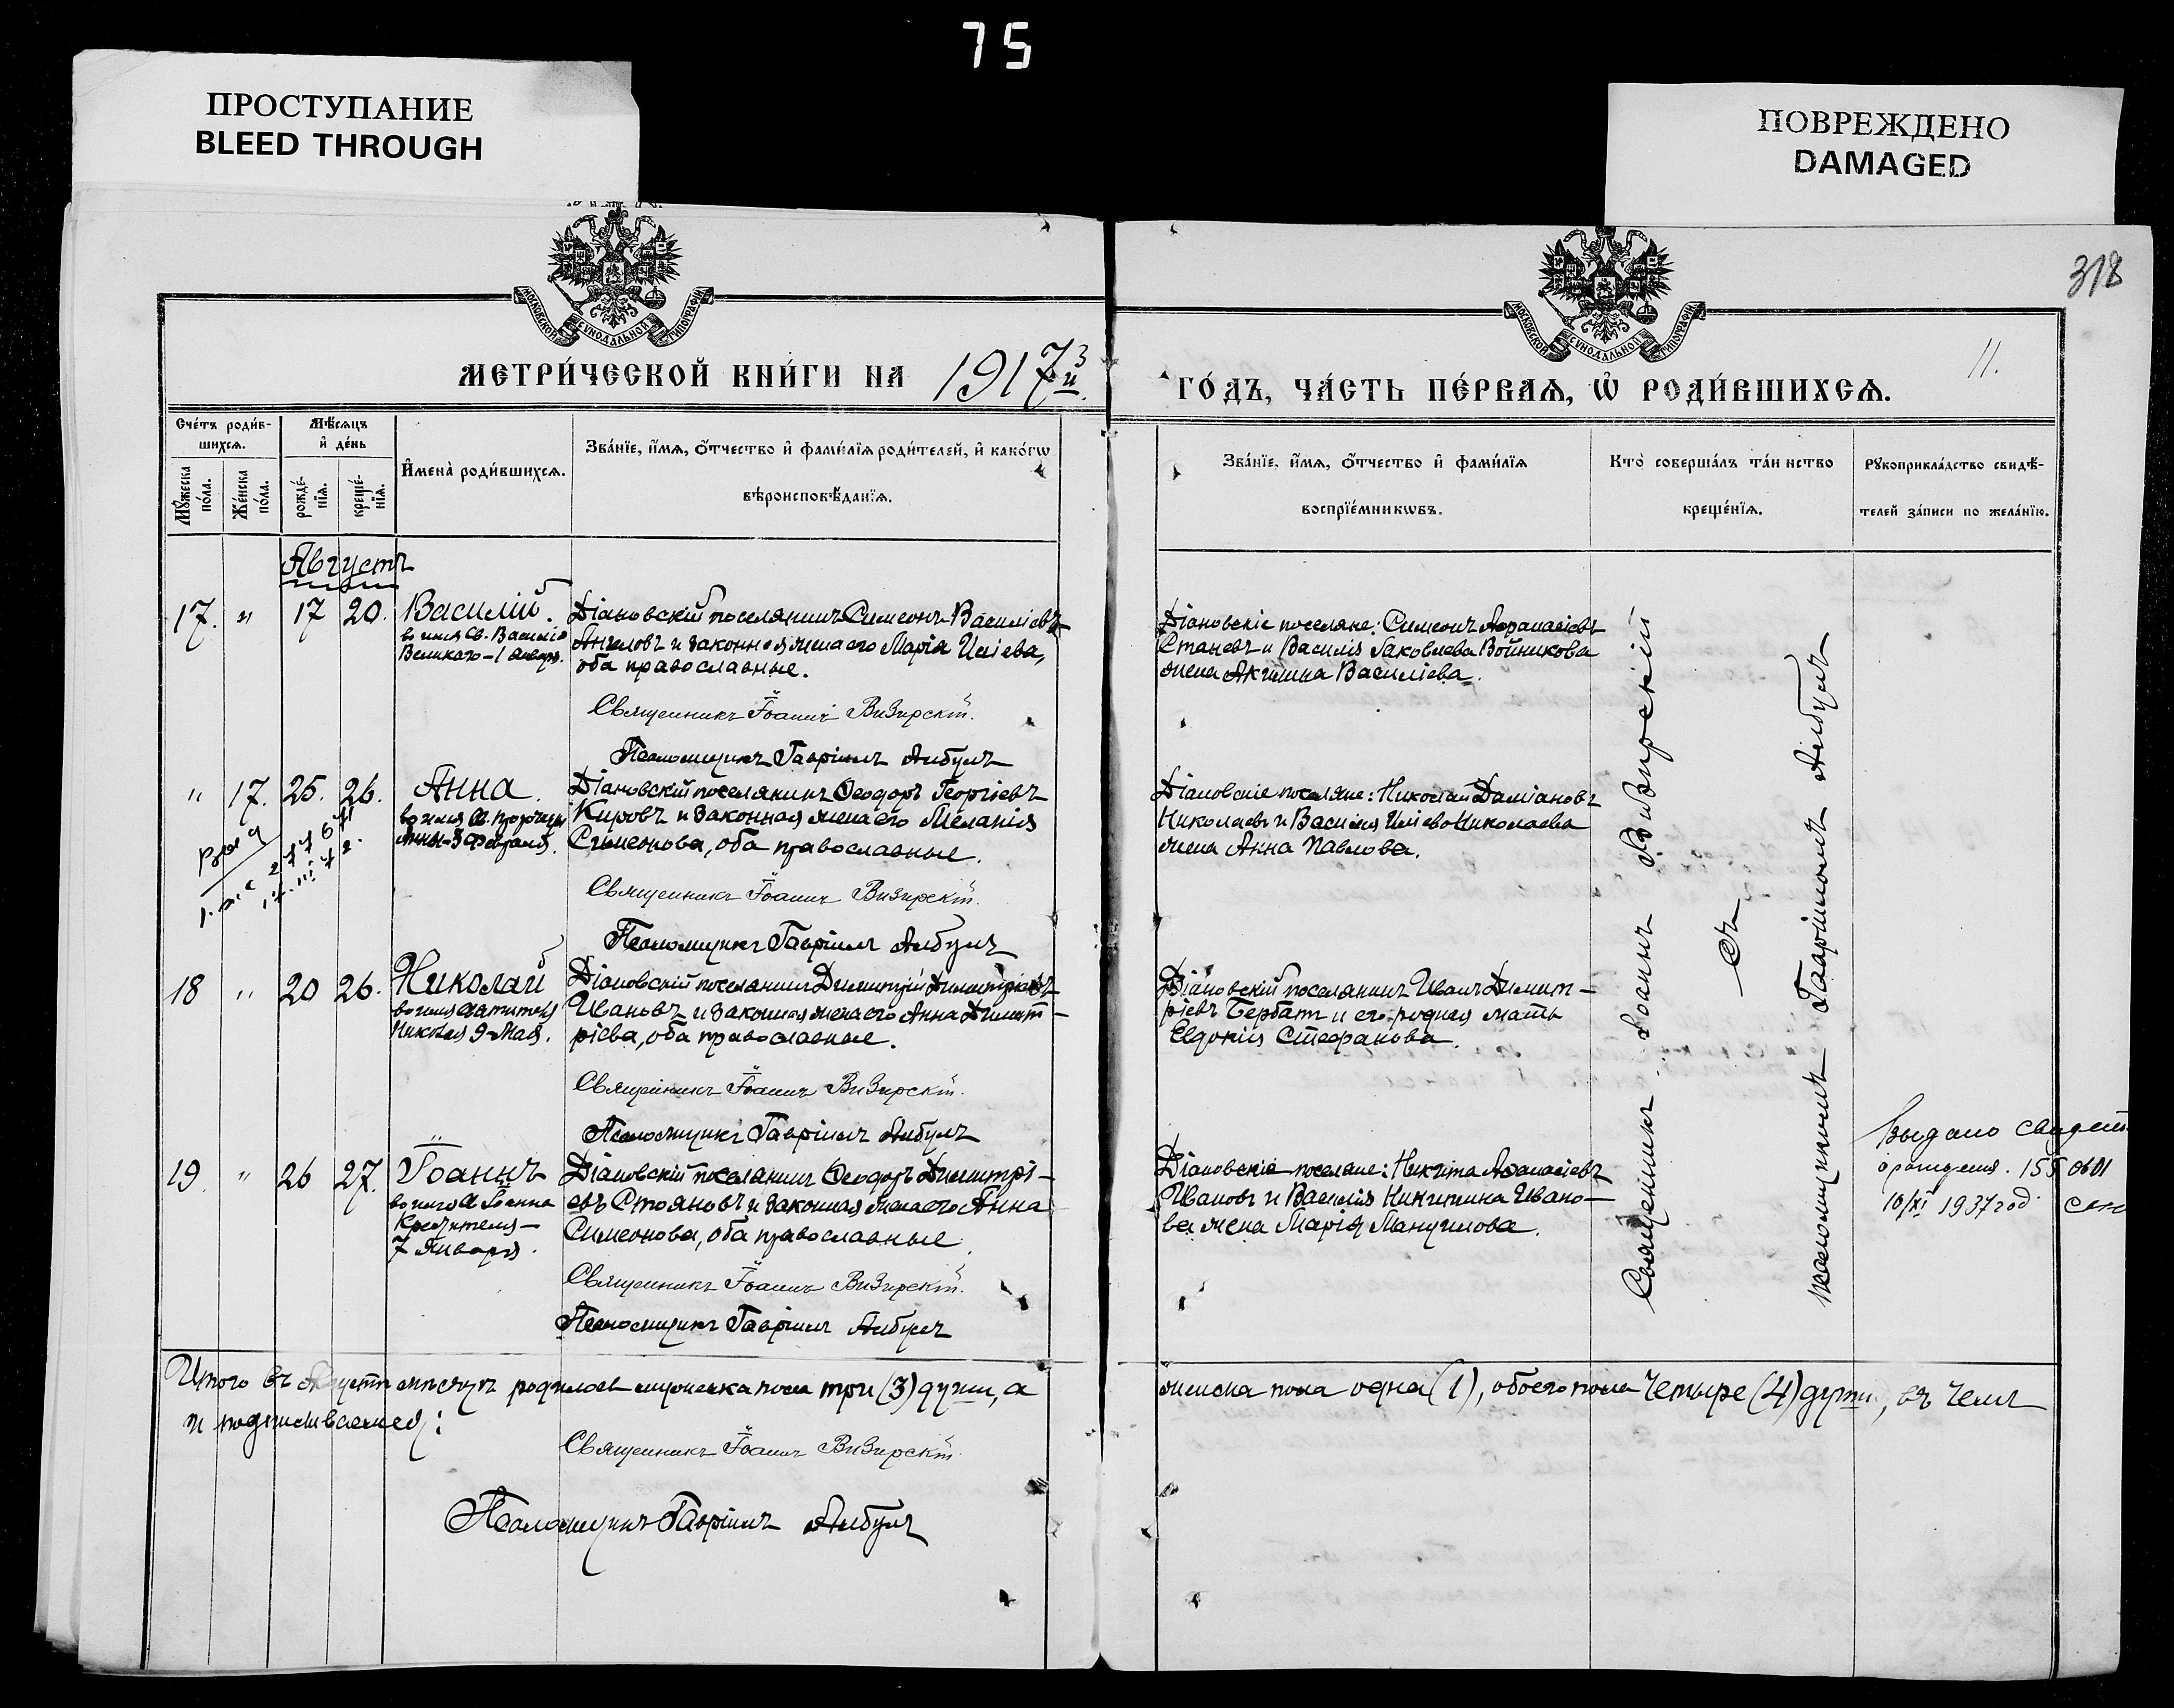 75
ПРОСТУПАНИЕ
BLEED THROUGH
ПОВРЕЖДЕНО
DAMAGED
318
МОСКОВСКОЙ СѴНОДАЛЬНОЙ ТИПОГРАФІИ
МОСКОВСКОЙ СѴНОДАЛЬНОЙ ТИПОГРАФІИ
11.
МЕТРИ́ЧЕСКОЙ КНИ́ГИ НА 1917й
ГО́ДЪ, ЧА́СТЬ ПЕ́РВАѦ, Ѡ҆ РОДИ́ВШИХСѦ.
Сче́тъ роди́в-
шихсѧ.
Мѣ́сѧцъ
и҆ де́нь
Мꙋ́жеска
по́ла.
Же́нска
по́ла.
рожде́-
нїѧ.
креще́-
нїѧ.
И҆мена̀ роди́вшихсѧ.
Зва́нїе, и҆́мѧ, ѻ҆́тчество и҆ фами́лїѧ роди́телей, и҆ како́гѡ
вѣроисповѣ́данїѧ.
Зва́нїе, и҆́мѧ, ѻ҆́тчество и҆ фами́лїѧ
воспрїе́мникѡвъ.
Кто̀ соверша́лъ та́инство
креще́нїѧ.
Рꙋкоприкла́дство свидѣ́-
телей за́писи по жела́нїю.
Августъ
17. " 17 20. Василій.
во имя Св. Василія
Великаго – 1 Января.
Діановскій поселянинъ Симеонъ Василіевъ
Ангеловъ и законная жена его Марія Иліева,
оба православные.
Священникъ Іоаннъ Визирскій.
Псаломщикъ Гавріилъ Албулъ
Діановскіе поселяне: Симеонъ Афанасіевъ
Станевъ и Василія Іаковлева Войникова
жена Акилина Василіева.
" 17. 25. 26. Анна.
во имя Св. Пророчицы
Анны – 3 Февраля.
Діановскій поселянинъ Ѳеодоръ Георгіевъ
Кировъ и законная жена его Меланія
Симеонова, оба православные.
Священникъ Іоаннъ Визирскій.
Псаломщикъ Гавріилъ Албулъ
Діановскіе поселяне: Николай Даміановъ
Николаевъ и Василія Иліева Николаева
жена Анна Павлова.
18 " 20 26. Николай
во имя Святителя
Николая 9 Мая.
Діановскій поселянинъ Димитрій Димитріевъ
Ивановъ и законная жена его Анна Димит-
ріева, оба православные.
Священникъ Іоаннъ Визирскій.
Псаломщикъ Гавріилъ Албулъ
Діановскій поселянинъ Иванъ Димит-
ріевъ Бербатъ и его родная мать
Евдокія Стефанова.
19. " 26 27. Іоаннъ
во имя Св. Іоанна
Крестителя –
7 Января.
Діановскій поселянинъ Ѳеодоръ Димитрі-
евъ Стояновъ и законная жена его Анна
Симеонова, оба православные.
Священникъ Іоаннъ Визирскій.
Псаломщикъ Гавріилъ Албулъ
Діановскіе поселяне: Никита Афанасіевъ
Ивановъ и Василія Никитина Ивано-
ва жена Марія Мануилова.
Священникъ Іоаннъ Визирскій
съ
псаломщикомъ Гавріиломъ Албулъ
Выдано свидет
о рождения. 155
10/XI 1937 год
Итого въ Августѣ мѣсяцѣ родилось мужеска пола три (3) души, а
женска пола одна (1), обоего пола четыре (4) души, въ чемъ
и подписываемся:
Священникъ Іоаннъ Визирскій.
Псаломщикъ Гавріилъ Албулъ